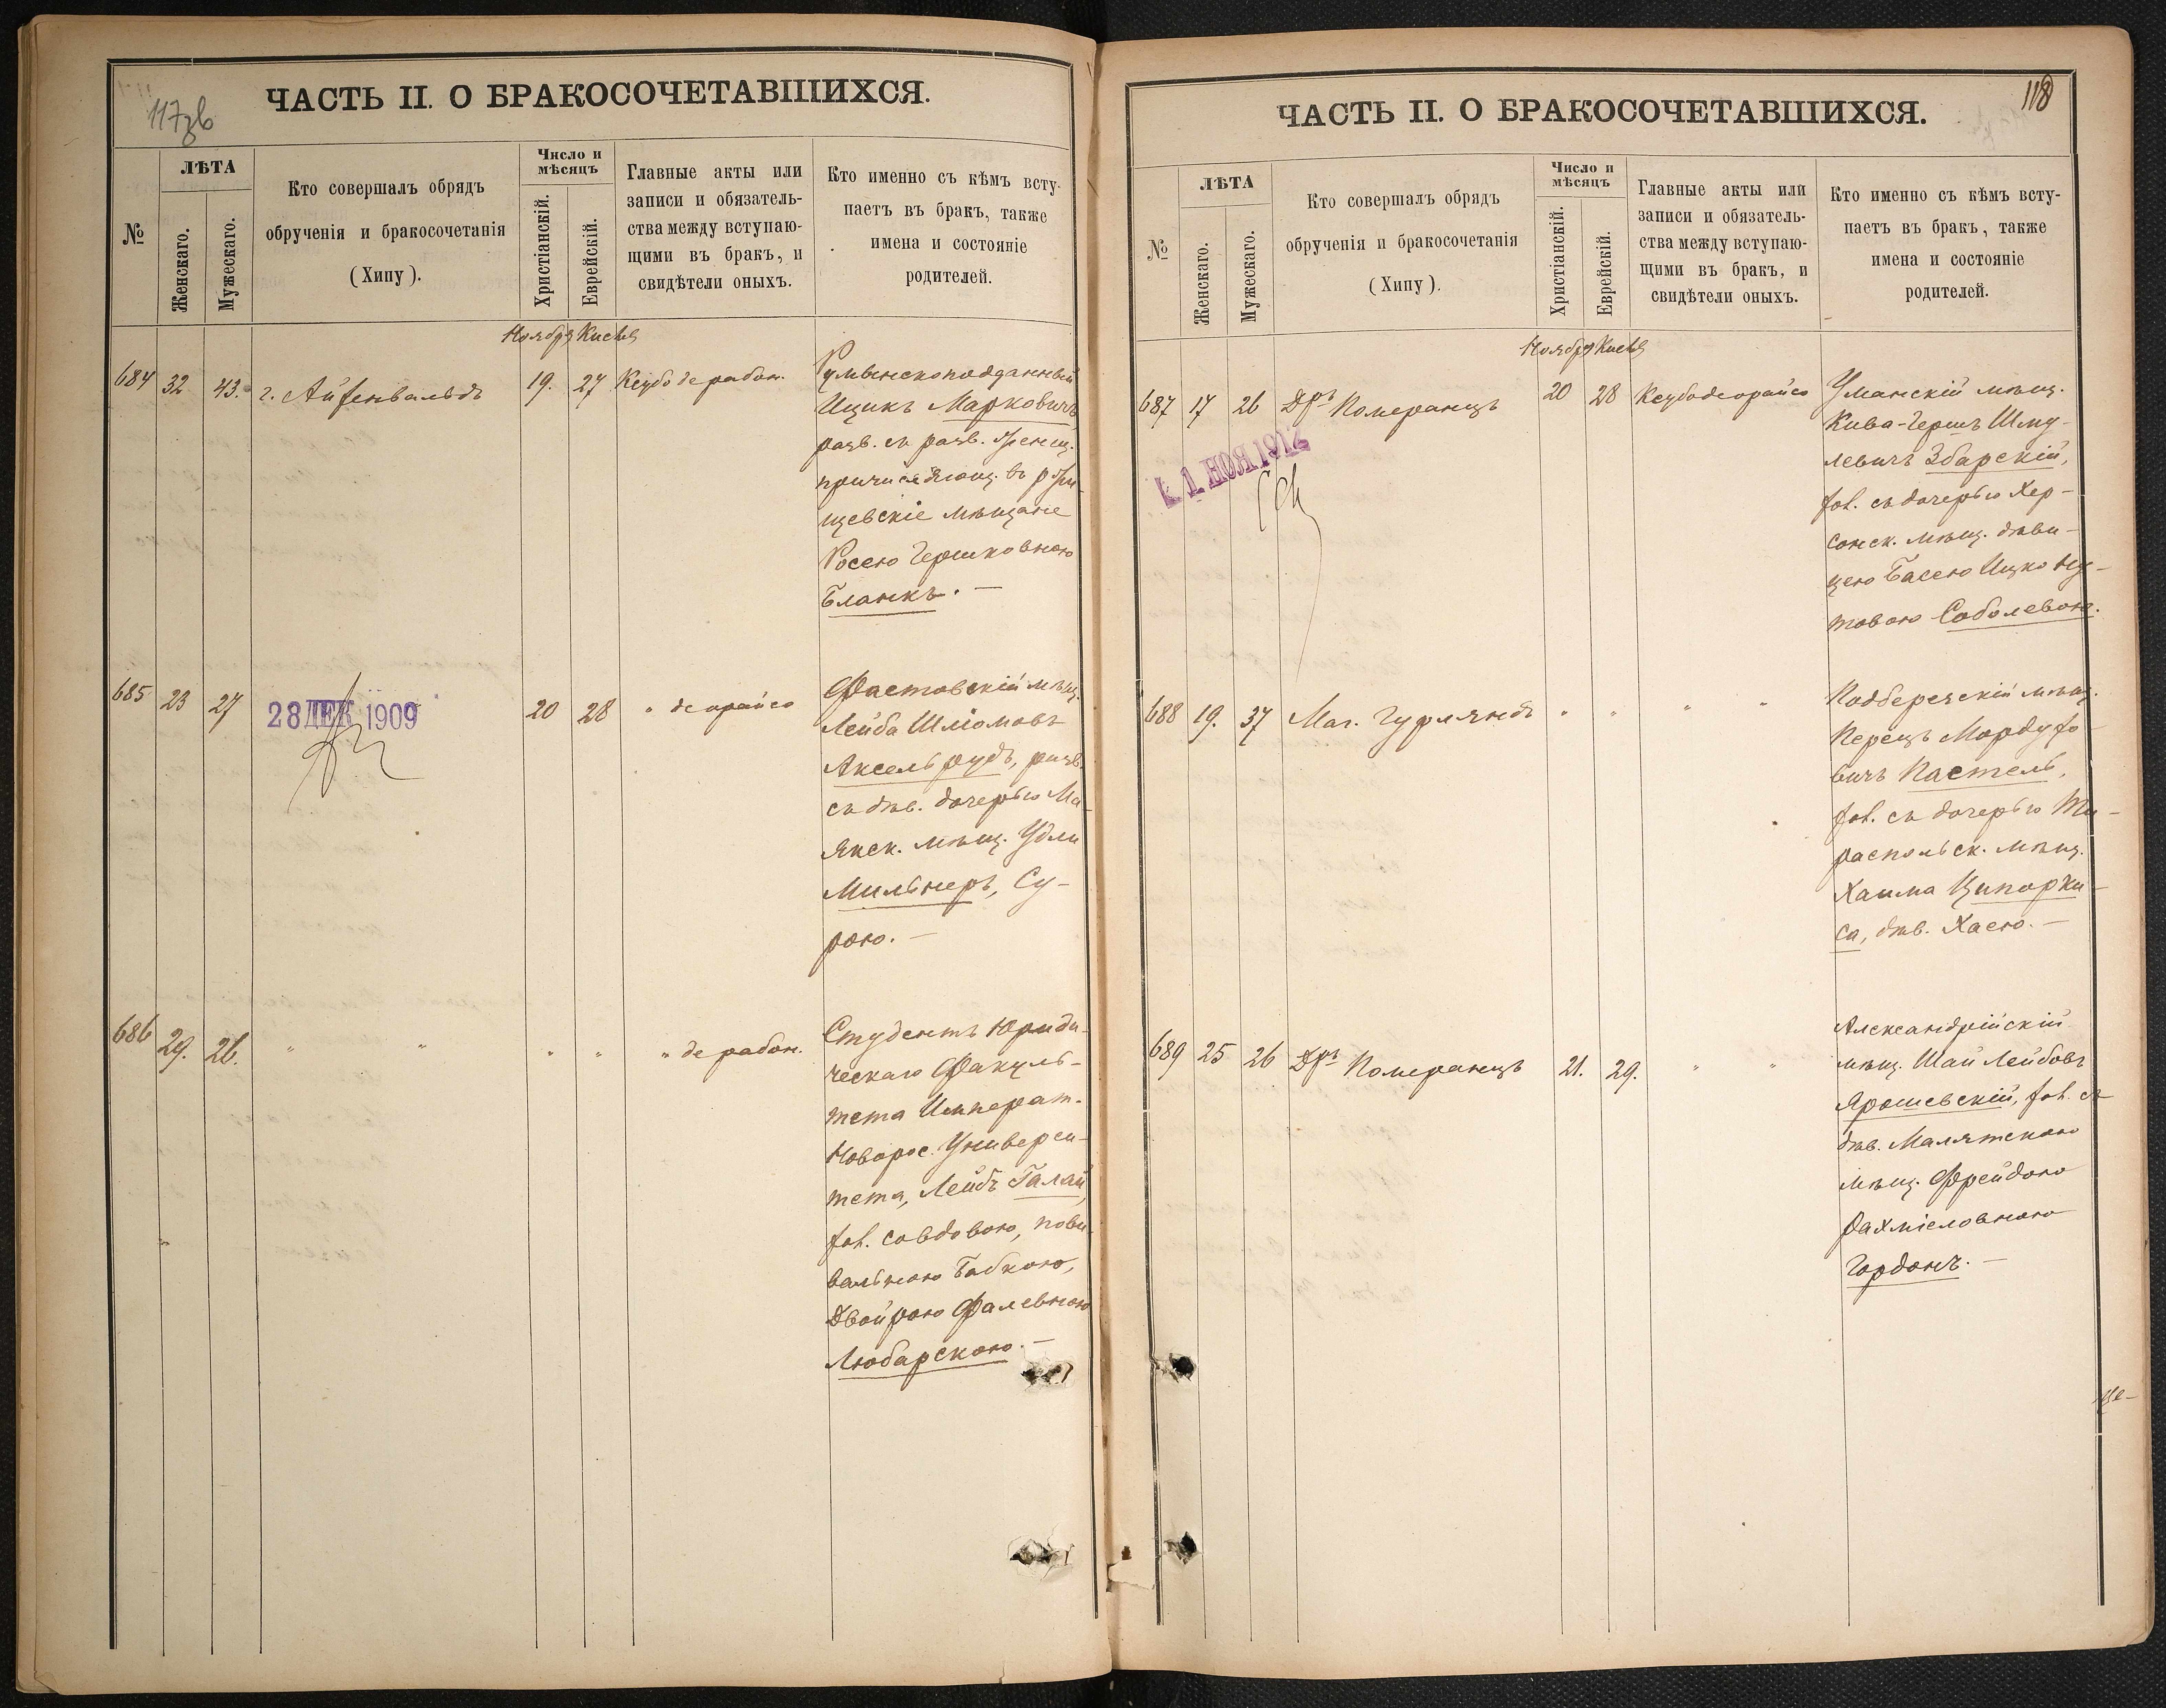 117 зв
ЧАСТЬ II. О БРАКОСОЧЕТАВШИХСЯ.
№
ЛѢТА
Женскаго.
Мужескаго.
Кто совершалъ обрядъ
обрученія и бракосочетанія
(Хипу).
Число и
мѣсяцъ
Христіанскій.
Еврейскій.
Главные акты или
записи и обязатель-
ства между вступаю-
щими въ бракъ, и
свидѣтели оныхъ.
Кто именно съ кѣмъ всту-
паетъ въ бракъ, также
имена и состояніе
родителей.
Ноября
684 32 43. г. Айзенвальдъ 19. 27 Ксубо дерабон.
Румынскоподданный
Ицикъ Марковичъ
разв. съ разв.
мѣщане
Росею Гершковною
Бланкъ. —
685 23 27 28 ДЕК 1909 20 28 " деорайсо
Фастовскій мѣщ.
Лейба Шліомовъ
Аксельрудъ, разв.
съ дѣв. дочерью Ма-
якск. мѣщ. Удли
Мильнеръ, Су-
рою. —
686 29. 26. " " " " " дерабон.
Студентъ Юриди-
ческаго Факуль-
тета Императ.
Новорос. Универси-
тета, Лейбъ Галай,
хол. со вдовою, пови-
вальною бабкою,
Двойрою Фалевною
Любарскою. —
118
ЧАСТЬ II. О БРАКОСОЧЕТАВШИХСЯ.
№
ЛѢТА
Женскаго.
Мужескаго.
Кто совершалъ обрядъ
обрученія и бракосочетанія
(Хипу).
Число и
мѣсяцъ
Христіанскій.
Еврейскій.
Главные акты или
записи и обязатель-
ства между вступаю-
щими въ бракъ, и
свидѣтели оныхъ.
Кто именно съ кѣмъ всту-
паетъ въ бракъ, также
имена и состояніе
родителей.
Ноября
687 17 26 Дръ Померанцъ 20 28 Ксубо деорайсо
1 НОЯ 1912
Уманскій мѣщ.
Кива-Гершъ Шму-
левичъ Збарскій,
хол. съ дочерью Хер-
сонск. мѣщ. дѣви-
цею Басею Ицко Ну-
товою Соболевою.
688 19. 37 Маг. Гурляндъ " " " "
Подберезскій мѣщ.
Перецъ Мордухо-
вичъ Пастель,
хол. съ дочерью Ти-
распольск. мѣщ.
Хаима Ципорки-
са, дѣв. Хаею. —
689 25 26 Дръ Померанцъ 21. 29. " "
Александрійскій
мѣщ. Шай Лейбовъ
Ярошевскій, хол. съ
дѣв. Малятскою
мѣщ. Фрейдою
Рахміеловною
Гордонъ. —